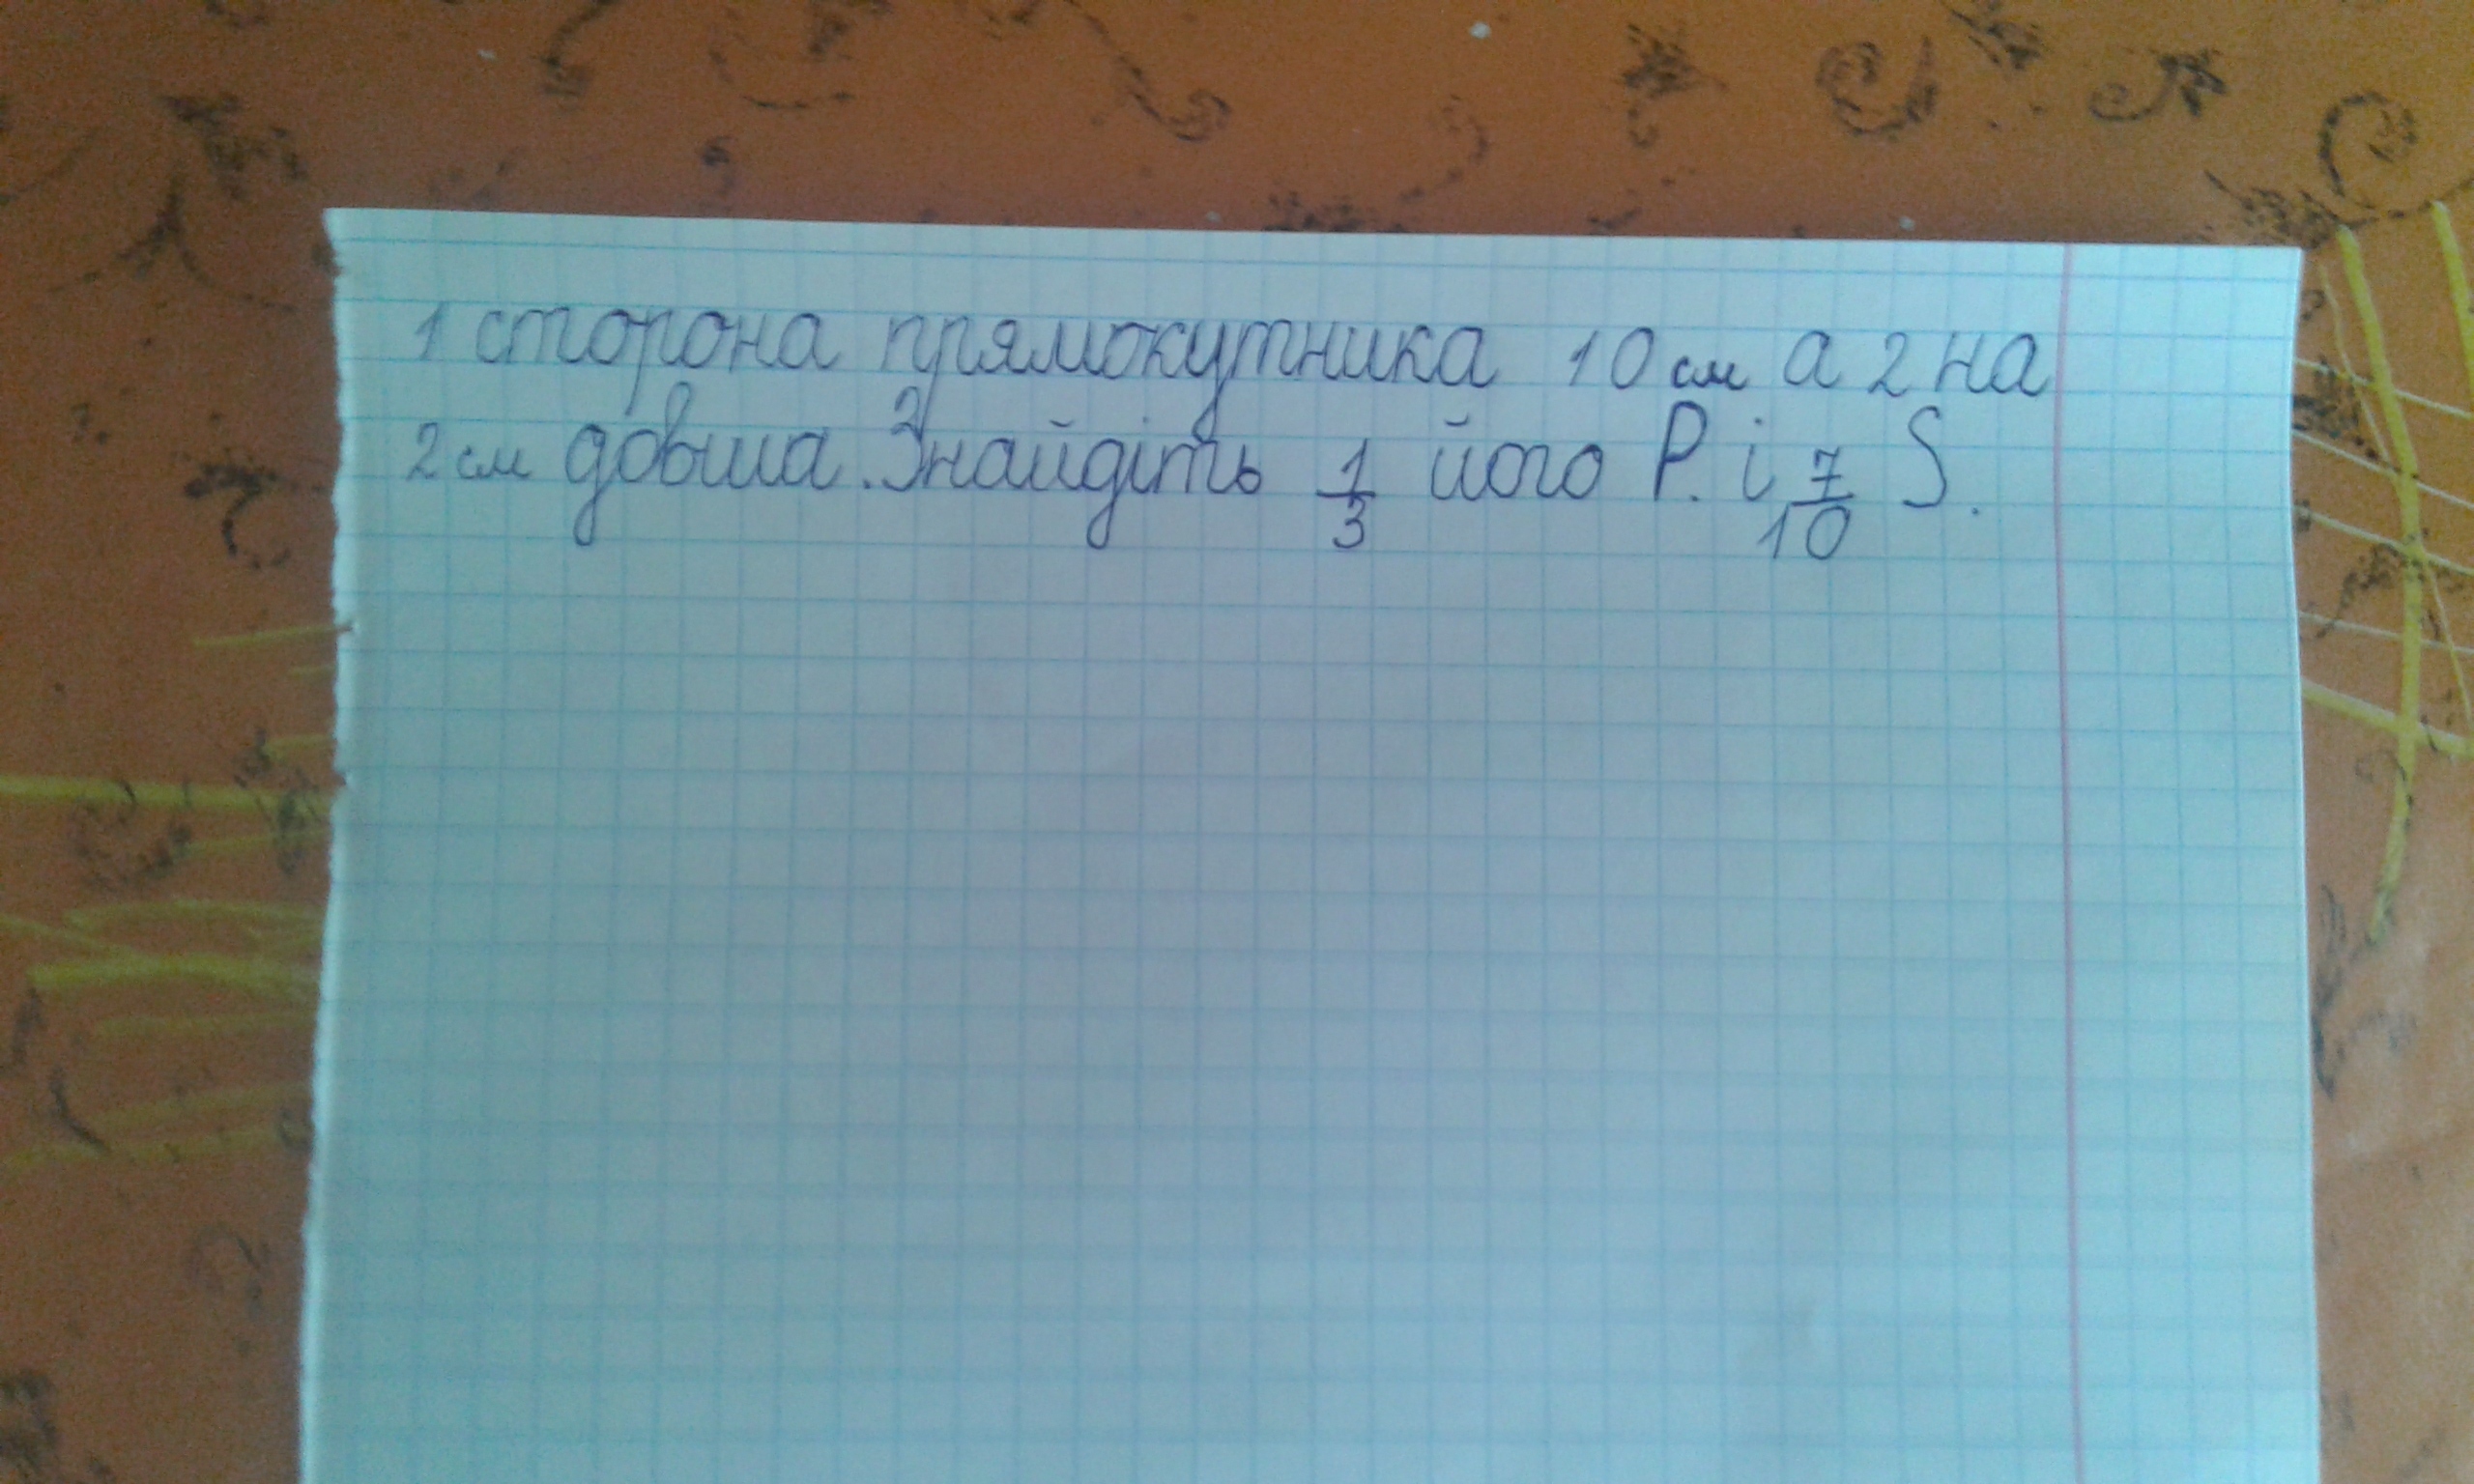 1 сторона прямокутника 10 см а 2 на
2 см довша. Знайдіть 1/3 його P. і 7/10 S.